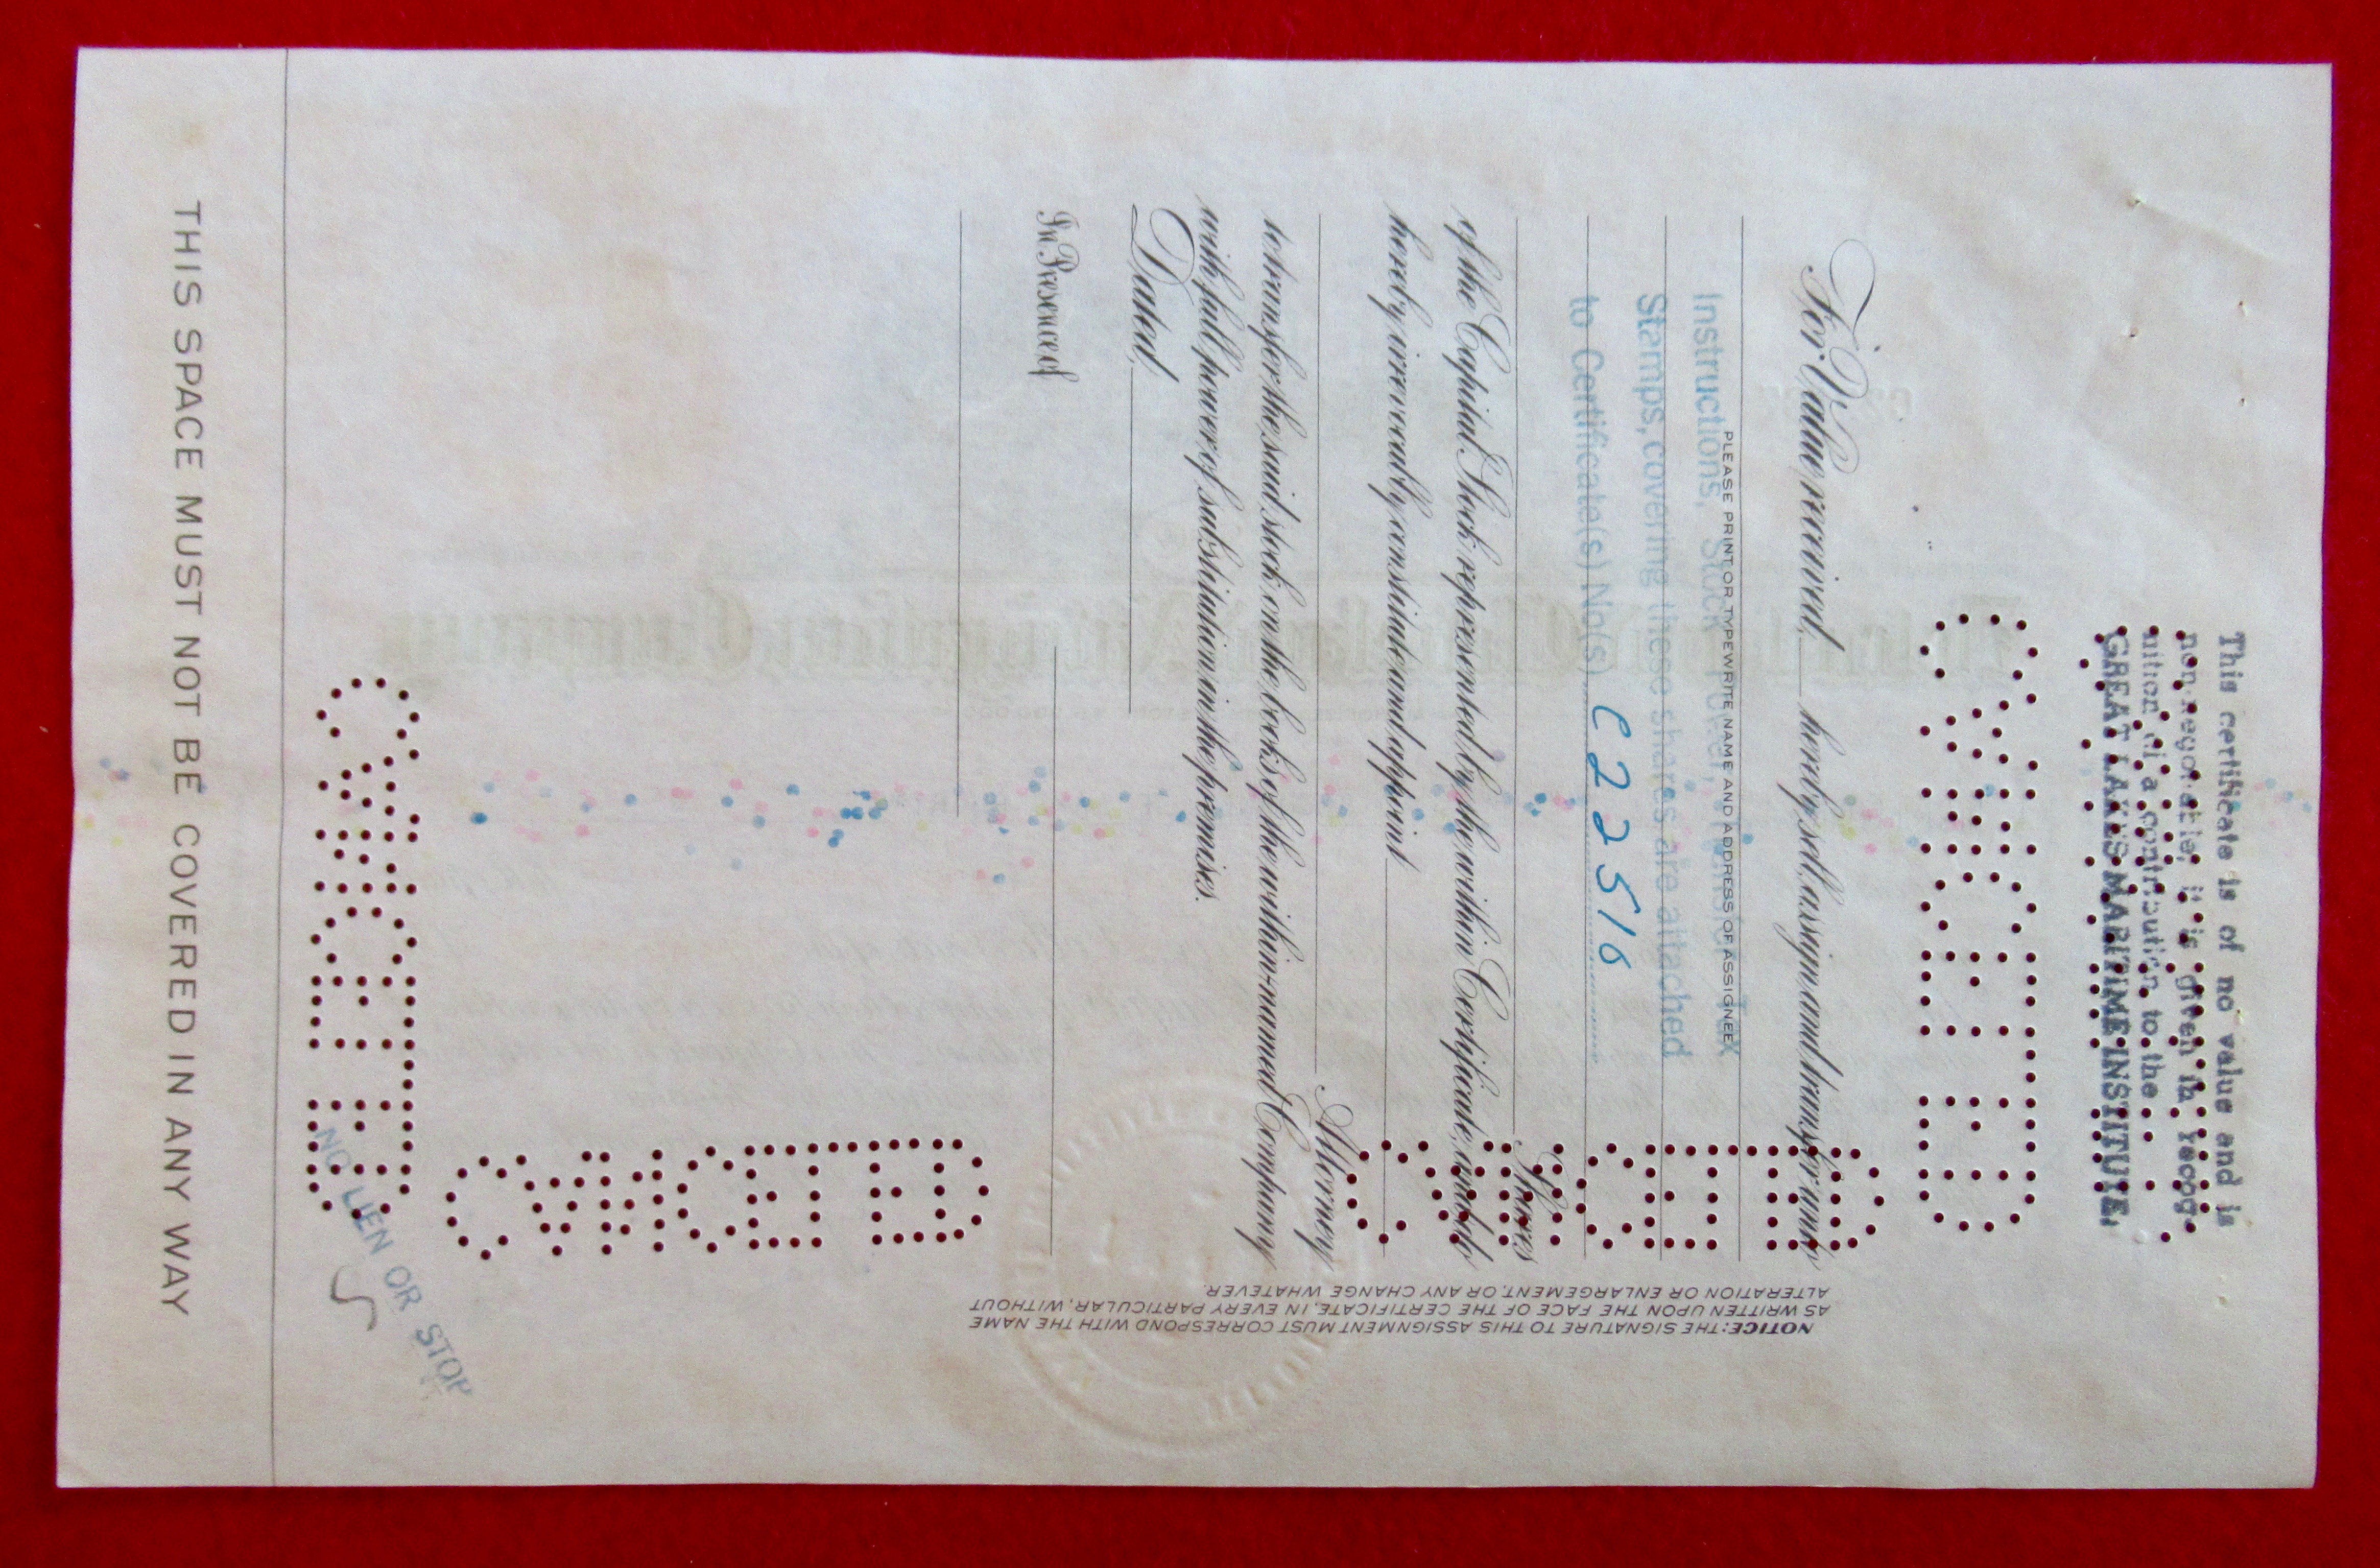 This certificate is of no value and is
non-negotiable; it is given in recog-
nition of a contribution to the
GREAT LAKES MARITIME INSTITUTE.
CANCELLED
For Value received, hereby sell, assign and transfer unto
PLEASE PRINT OR TYPEWRITE NAME AND ADDRESS OF ASSIGNEE
Instructions, Stock Power, Transfer Tax
Stamps, covering these shares are attached
to Certificate(s) No(s) C22516
Shares
of the Capital Stock represented by the within Certificate, and do
hereby irrevocably constitute and appoint
Attorney
to transfer the said stock on the books of the within-named Company
with full power of substitution in the premises.
Dated,
In Presence of
CANCELLED
CANCELLED
CANCELLED
NOTICE: THE SIGNATURE TO THIS ASSIGNMENT MUST CORRESPOND WITH THE NAME
AS WRITTEN UPON THE FACE OF THE CERTIFICATE, IN EVERY PARTICULAR, WITHOUT
ALTERATION OR ENLARGEMENT, OR ANY CHANGE WHATEVER.
NO LIEN OR STOP
THIS SPACE MUST NOT BE COVERED IN ANY WAY